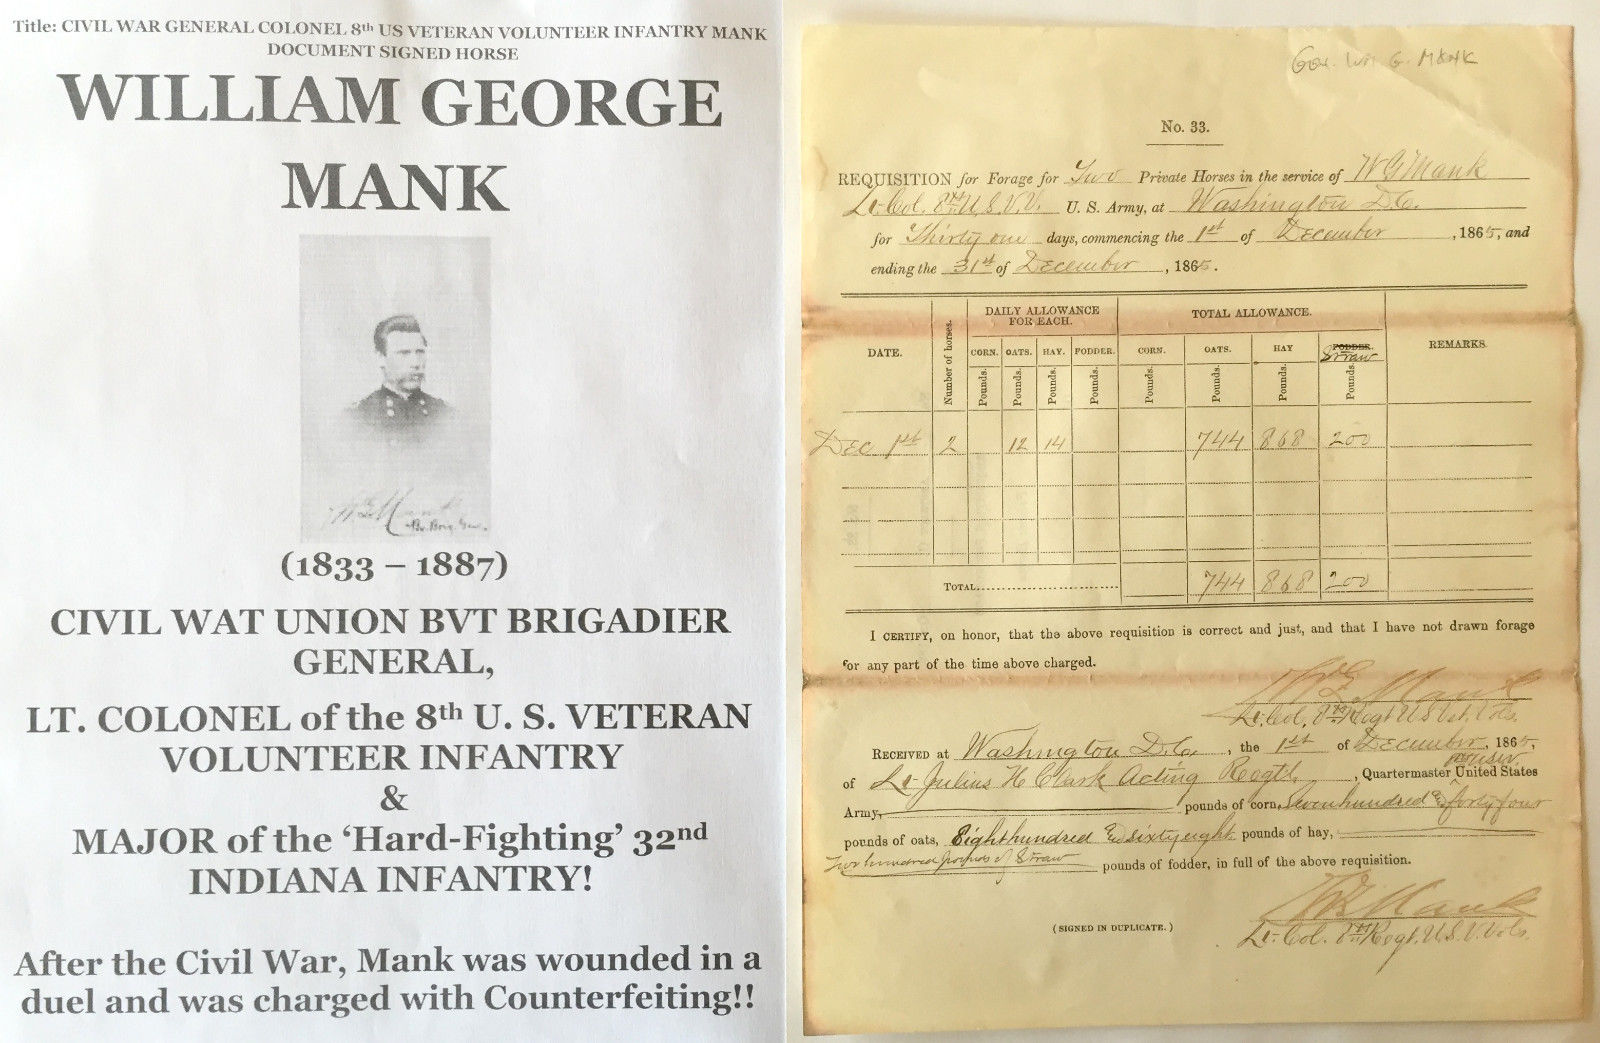 Title: CIVIL WAR GENERAL COLONEL 8th US VETERAN VOLUNTEER INFANTRY MANK
DOCUMENT SIGNED HORSE
WILLIAM GEORGE
MANK
W G Mank
Bv. Brig. Gen.
(1833 – 1887)
CIVIL WAT UNION BVT BRIGADIER
GENERAL,
LT. COLONEL of the 8th U. S. VETERAN
VOLUNTEER INFANTRY
&
MAJOR of the ‘Hard-Fighting’ 32nd
INDIANA INFANTRY!
After the Civil War, Mank was wounded in a
duel and was charged with Counterfeiting!!
GEN. WM G. MANK
No. 33.
REQUISITION for Forage for Two Private Horses in the service of W G Mank
Lt. Col. 8th U.S.V.V. U. S. Army, at Washington D.C.
for Thirty one days, commencing the 1st of December, 1865, and
ending the 31st of December, 1865.
DATE. Number of horses. DAILY ALLOWANCE FOR EACH. TOTAL ALLOWANCE. REMARKS.
CORN. OATS. HAY. FODDER. CORN. OATS. HAY FODDER. Straw
Pounds. Pounds. Pounds. Pounds. Pounds. Pounds. Pounds. Pounds.
Dec 1st 2 12 14 744 868 200
TOTAL 744 868 200
I CERTIFY, on honor, that the above requisition is correct and just, and that I have not drawn forage
for any part of the time above charged.
W G Mank
Lt. Col. 8th Regt U S Vet. Vols.
RECEIVED at Washington D.C., the 1st of December, 1865,
of Lt Julius H Clark Acting Regtl, Quartermaster United States
Army, pounds of corn, Sevenhundred & forty four
pounds of oats, Eighthundred & sixtyeight pounds of hay,
Two hundred pounds of Straw pounds of fodder, in full of the above requisition.
W G Mank
(SIGNED IN DUPLICATE.)
Lt. Col. 8th Regt. U.S.V. Vols.